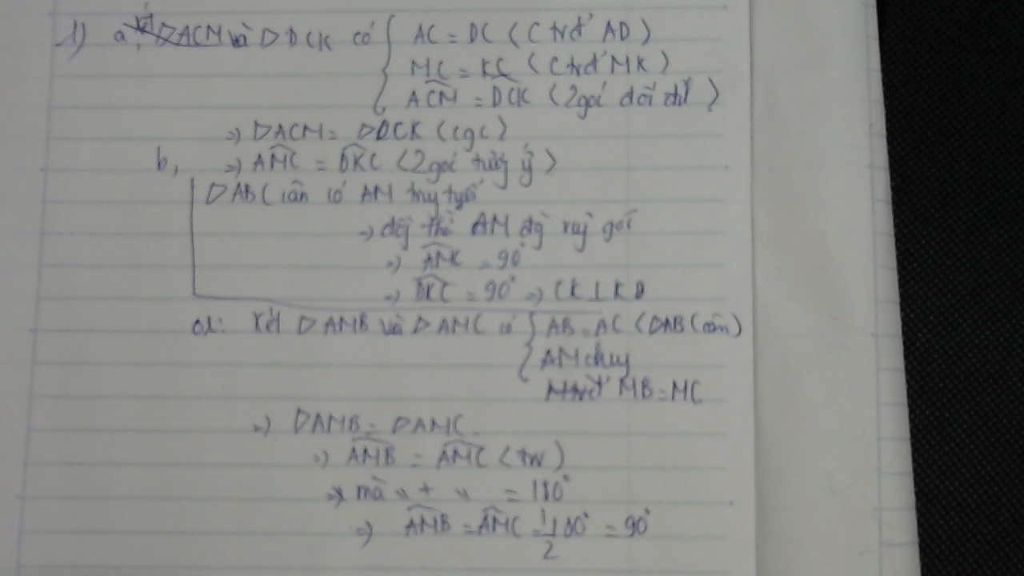 1) a, xét ΔACM và ΔDCK có { AC = DC (C trđ AD)
MC = KC (C trđ MK)
ACM = DCK (2 góc đối đỉ)
=> ΔACM = ΔDCK (cgc)
b, => AMC = DKC (2 góc tương ứ)
ΔABC cân có AM trug tyế
=> đồg thờ AM đg
=> AMC = 90°
=> DKC = 90° => CK ⊥ KD
Xét ΔAMB và ΔAMC có { AB = AC (ΔABC cân)
AM chug
MB = MC
=> ΔAMB = ΔAMC
=> AMB = AMC (tw)
mà " + " = 180°
=> AMB = AMC = 1/2 180° = 90°